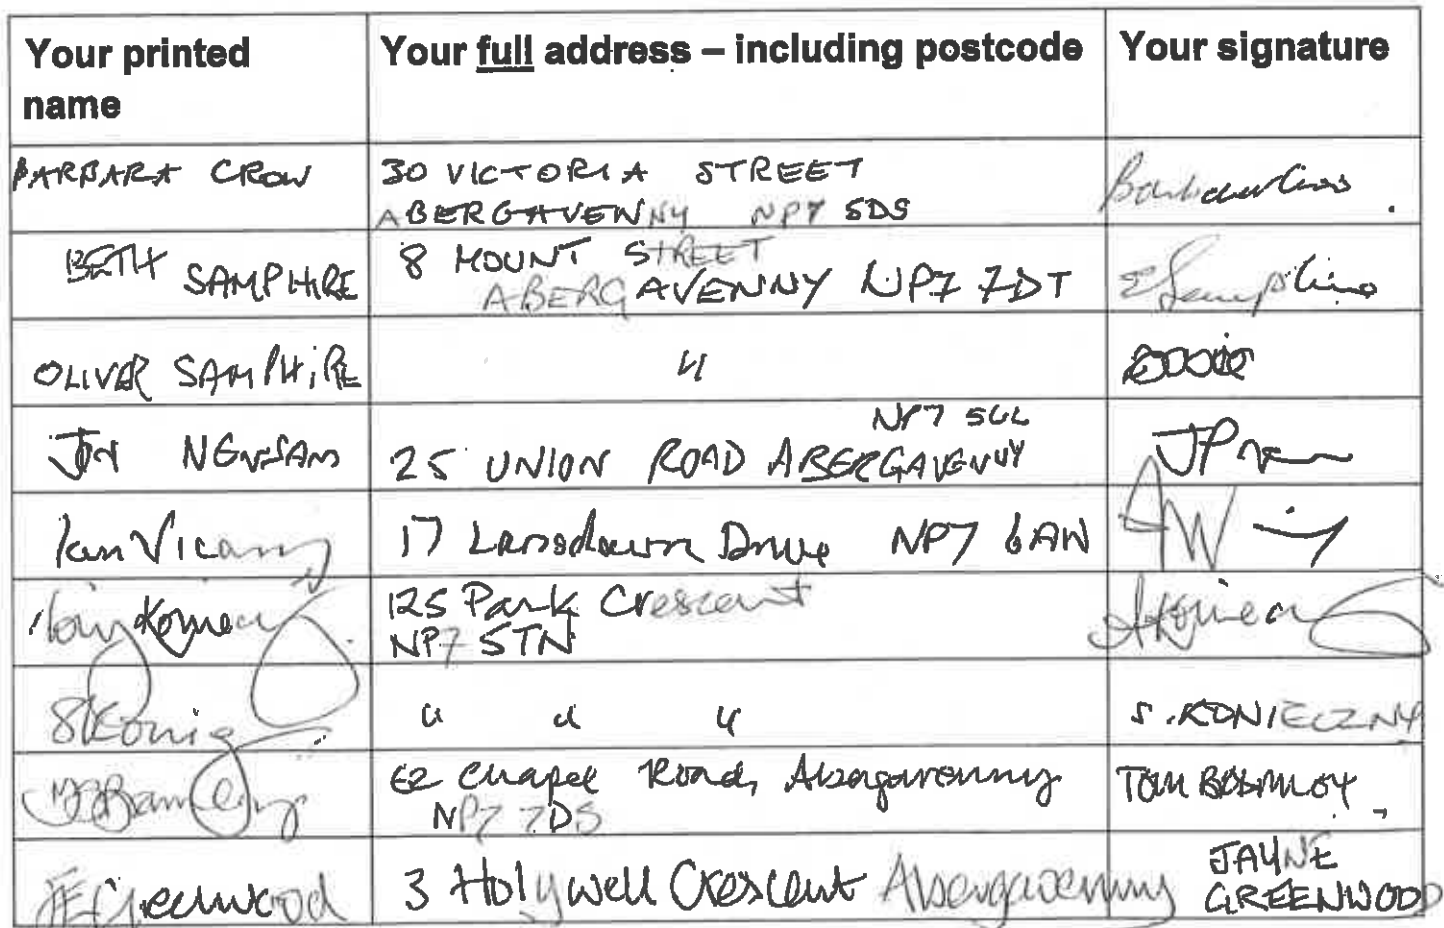 Your printed name
Your full address – including postcode
Your signature
BARBARA CROW
30 VICTORIA STREET
ABERGAVENNY NP7 5DS
Barbara Crow
BETH SAMPHIRE
8 MOUNT STREET
ABERGAVENNY NP7 7DT
E Samphire
OLIVER SAMPHIRE
"
JON NEWSAM
NP7 5UL
25 UNION ROAD ABERGAVENNY
Ian Vicary
17 Lansdown Drive NP7 6AW
Konieczny
125 Park Crescent
NP7 5TN
A Konieczny
" " "
S. KONIECZNY
62 Chapel Road, Abergavenny
NP7 7DS
TOM
JE Greenwood
3 Holywell Crescent Abergavenny
JAYNE
GREENWOOD